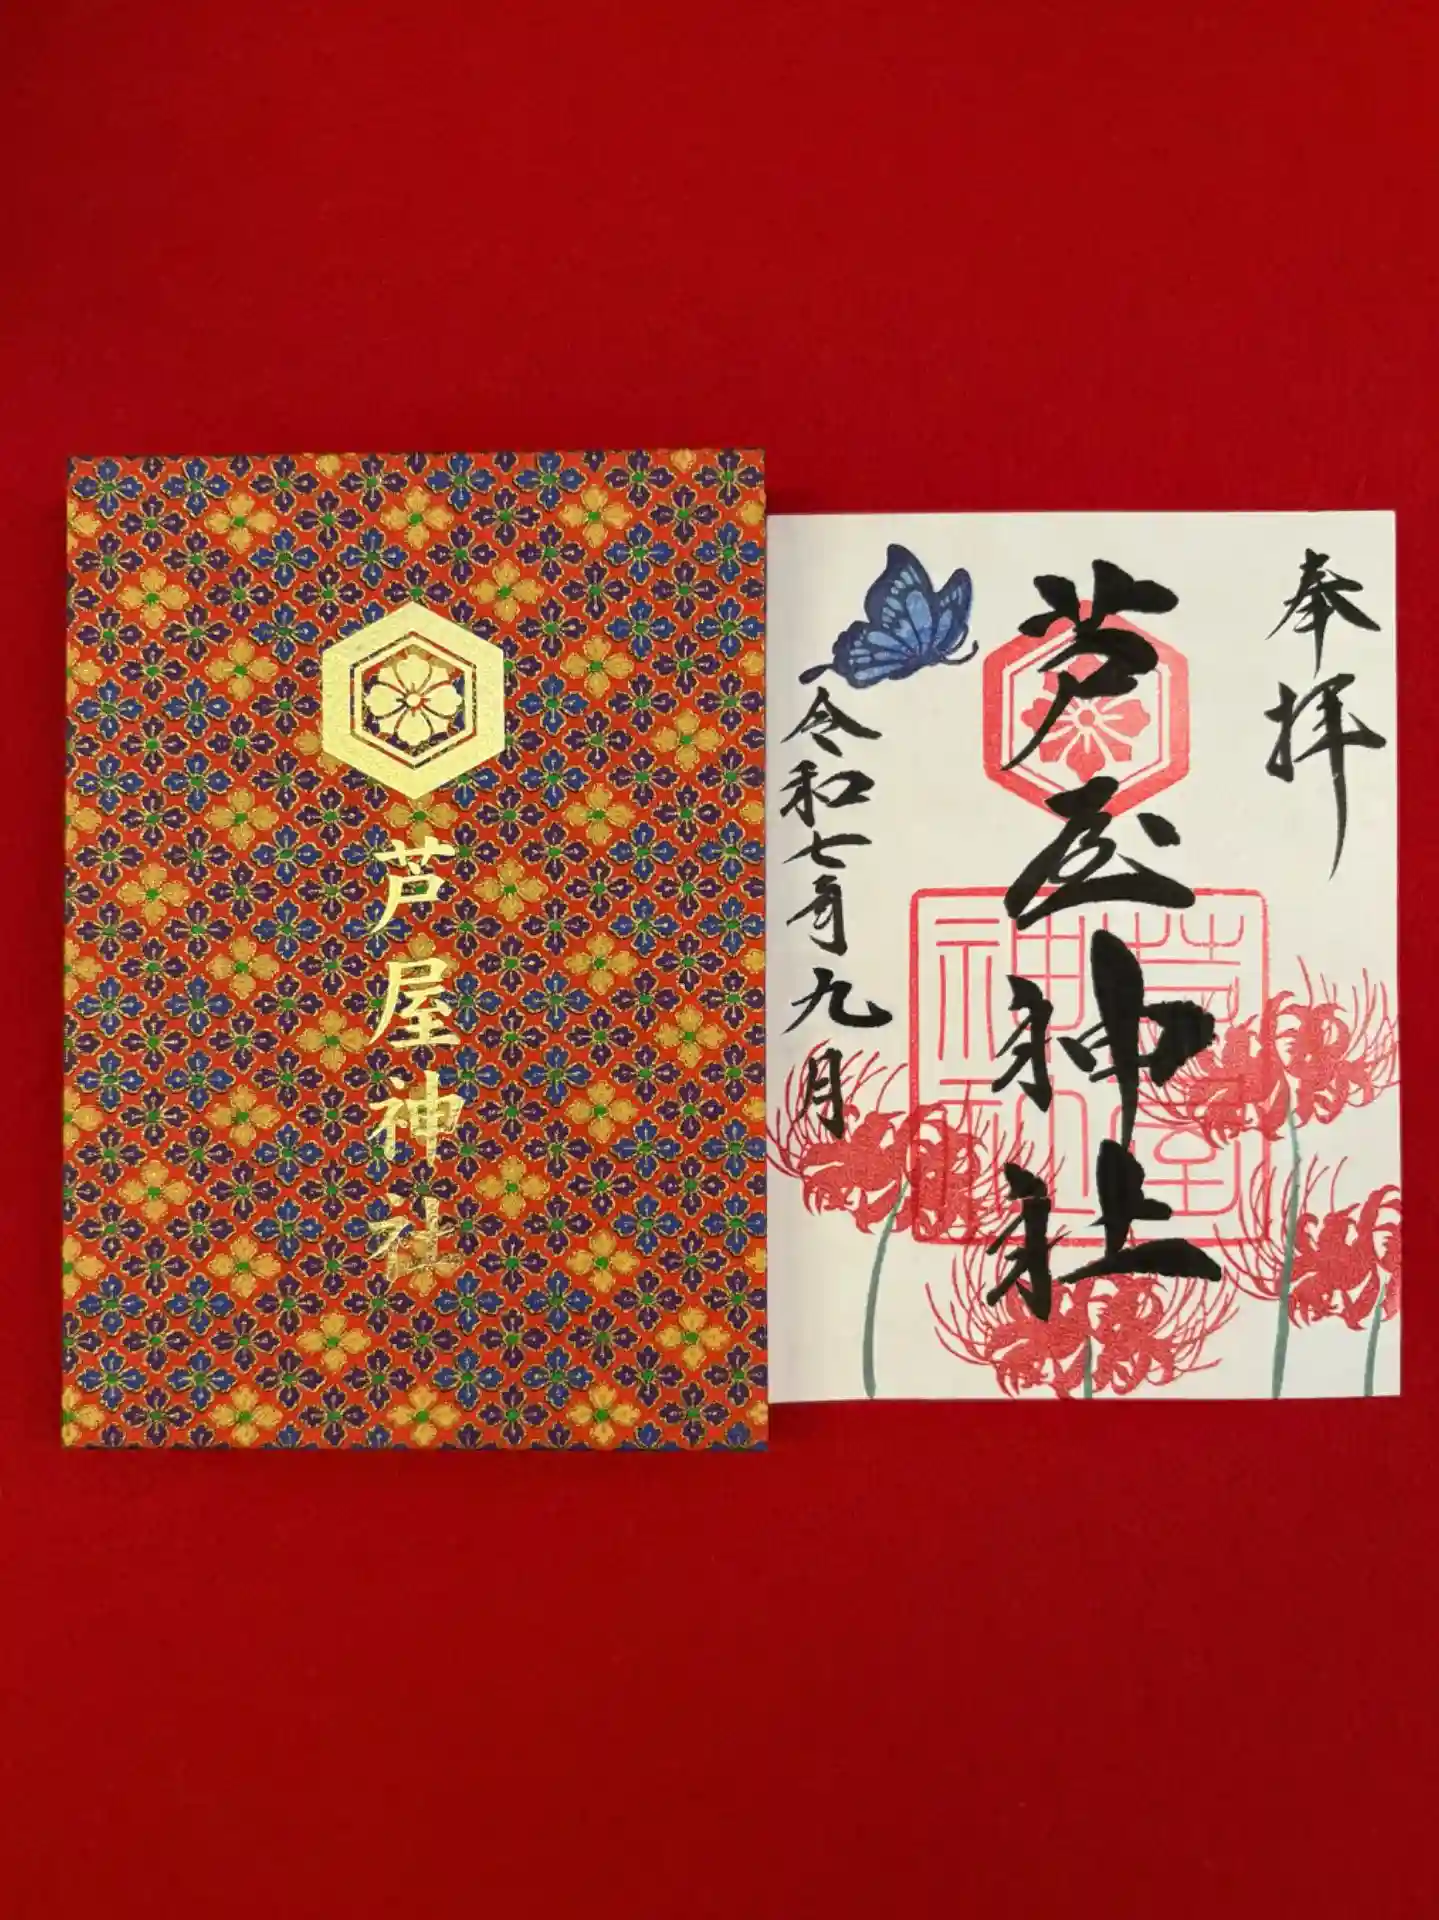 芦屋神社
奉拝
芦屋神社
令和七年九月
芦屋
神社